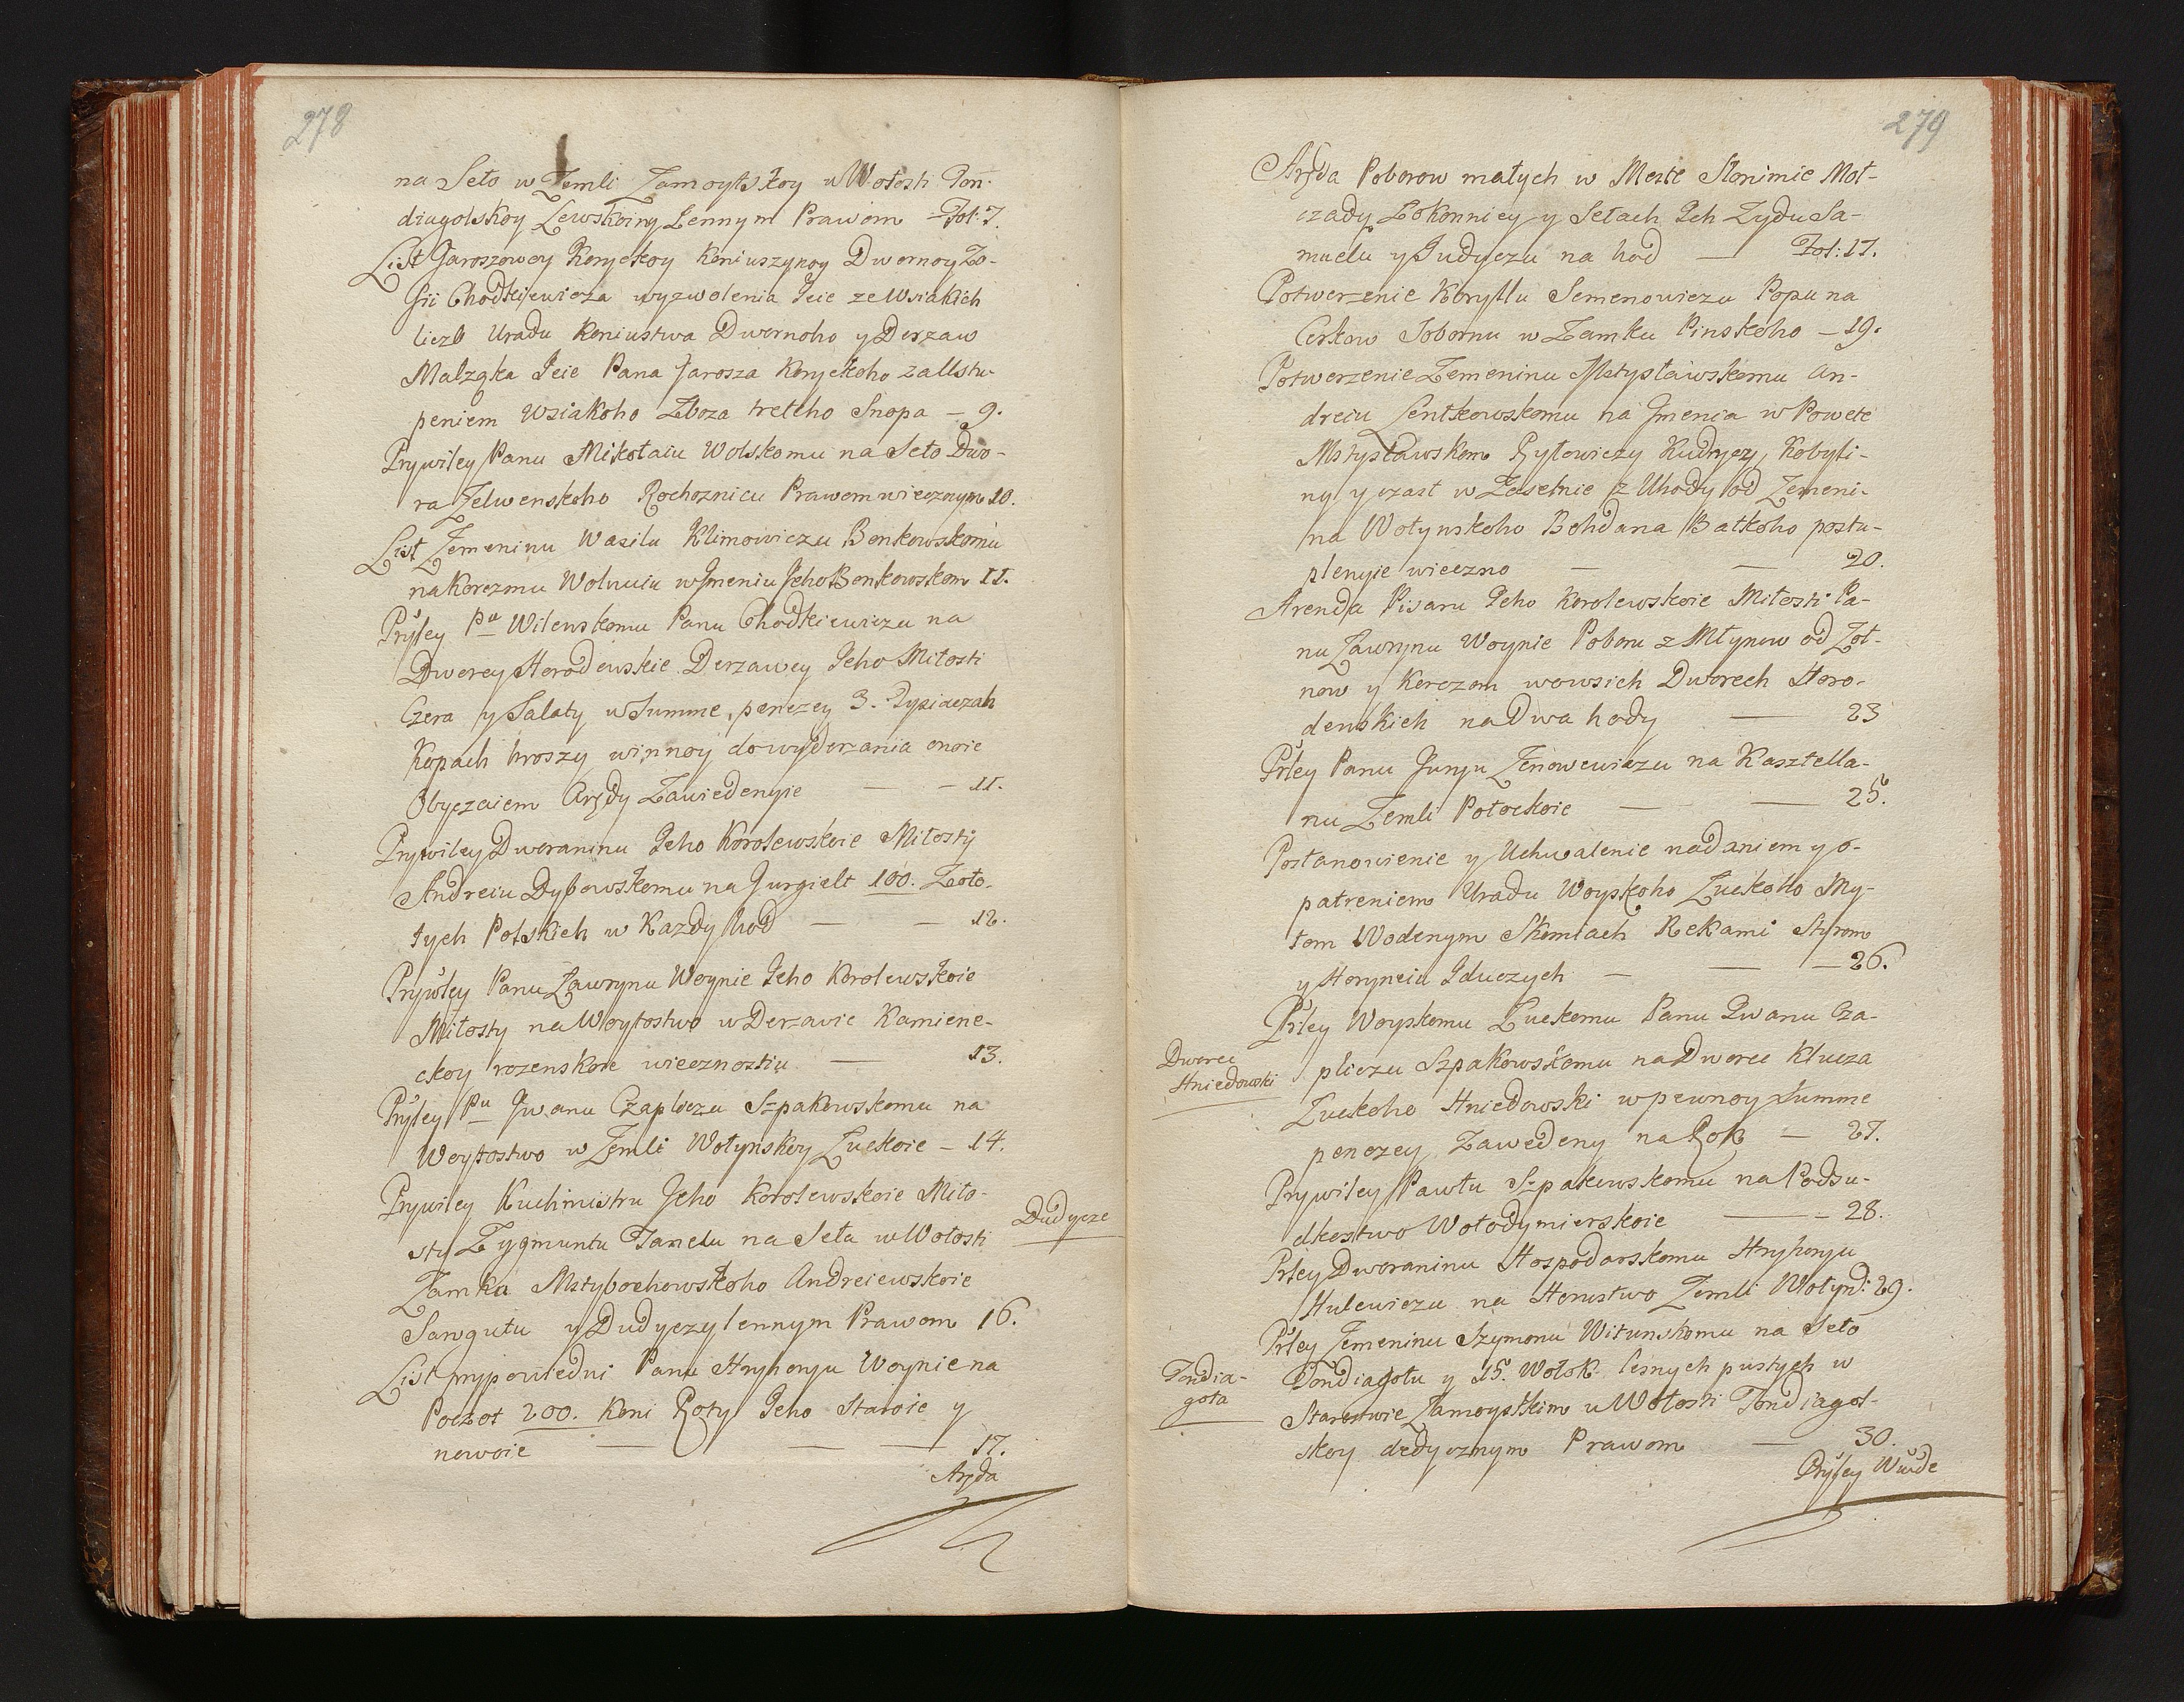 278
na Seło w Zemli Zamoytskoy u Wołosti Ton-
diagolskoy Lewskoiny Lennym Prawom – Fol: 7.
List Jaroszowey Koryckoy Koniuszynoy Dwornoy Zo-
fii Chodkijewicza wyzwolenia Jeie ze Wsiakich
liczb Uradu Koniustwa Dwornoho y Derzaw
Malząka Jeie Pana Jarosza Koryckoho za Ustu-
peniem Wsiakoho Zboza tretcho Snopa – 9.
Prywiley Panu Mikołaiu Wolskomu na Seło Dwo-
ra Zelwenskoho Rochoznicu Prawom wiecznym 10.
List Zemeninu Wasilu Klimowiczu Bonkowskomu
na Korczmu Wolnuiu w Jmeniu Jeho Bonkowskom 11.
Pryley Pu Wilenskomu Panu Chodkiewiczu na
Dworcy Horodenskie Derzawcy Jeho Miłosti
Ozera y Salaty w Summe penezey 3. Tysiaczah
Kopach hroszy winnoy do wyderzania onoie
Obyczaiem Arędy Zawiedenyie — – 11.
Prywiley Dworaninu Jeho Korolewskoie Miłosty
Andreiu Dybowskomu na Jurgielt 100. Zoło-
tych Polskich w Kazdy hod — – 12.
Prywley Panu Ławrynu Woynie Jeho Korolewskoie
Miłosty na Woytostwo w Derzawie Kamiene-
ckoy rozenskoie wiecznostiu — 13.
Pryley Pu Jwanu Czapliczu Szpakowskomu na
Woytostwo w Zemli Wołynskoy Łuckoie – 14.
Prywiley Kuchmistru Jeho Korolewskoie Miło-
sty Zygmuntu Tanelu na Seła w Wołosti
Dudycze
Zamka Mstybochowskoho Andreiewskoie
Sawgutu y Dudyczy lennym Prawom 16.
List prypowiedni Panu Hryhoryu Woynie na
Poczot 200. Koni Roty Jeho Staroie y
nowoie — — — 17.
Aręda
279
Aręda Poborow małych w Meste Słonimie Moł-
czady Zokonnicy y Sełach Jch Zydu Sa-
muelu y Judyczu na hod — Fol: 17.
Potwerzenie Koryłłu Semenowiczu Popu na
Cerkow Sobornu w Zamku Pinskoho – 19.
Potwerzenie Zemeninu Mstysławskomu An-
dreiu Sentkowskomu na Jmenia w Powete
Mstysławskom Ryłowiczy Kudryczy, Kobyli-
ny y czast w Zasełnie z Uhody od Zemeni-
na Wołynskoho Bohdana Batkoho postu-
plenyie wieczno — — 20.
Arenda Pisaru Jeho Korolewskoie Miłosti Pa-
nu Ławrynu Woynie Poboru z Młynow od Żoł-
now y Korczom wowsich Dworech Horo-
denskich na Dwa hody — 23
Prley Panu Juryu Zenowewiczu na Kasztella-
nu Zemli Połockoie — — 25.
Postanowienie y Uchwalenie nadaniem y o-
patreniem Uradu Woyskoho Łuckoho My-
tom Wodenym Skomiach Rekami Styrom
y Horyneiu Jduczych — — – 26.
Prley Woyskomu Łuckomu Panu Jwanu Cza-
pliczu Szpakowskomu na Dworec Klucza
Dworec
Hniedowski
Łuckoho Hniedowski w pewnoy Summe
penezey Zawedeny na Rok — 27.
Prywiley Pawłu Szpakowskomu na Podsu-
dkostwo Wołodymierskoie — – 28.
Prley Dworaninu Hospodarskomu Hryhoryu
Hulewiczu na Horustwo Zemli Wołyń: 29.
Prley Zemeninu Szymonu Witunskomu na Seło
Tondiagołu y 15. Wołok lesnych pustych w
Tondia-
goła
Starostwie Zamoyskim u Wołosti Tondiagol-
skoy dedycznym Prawom — 30.
Pryley Wude